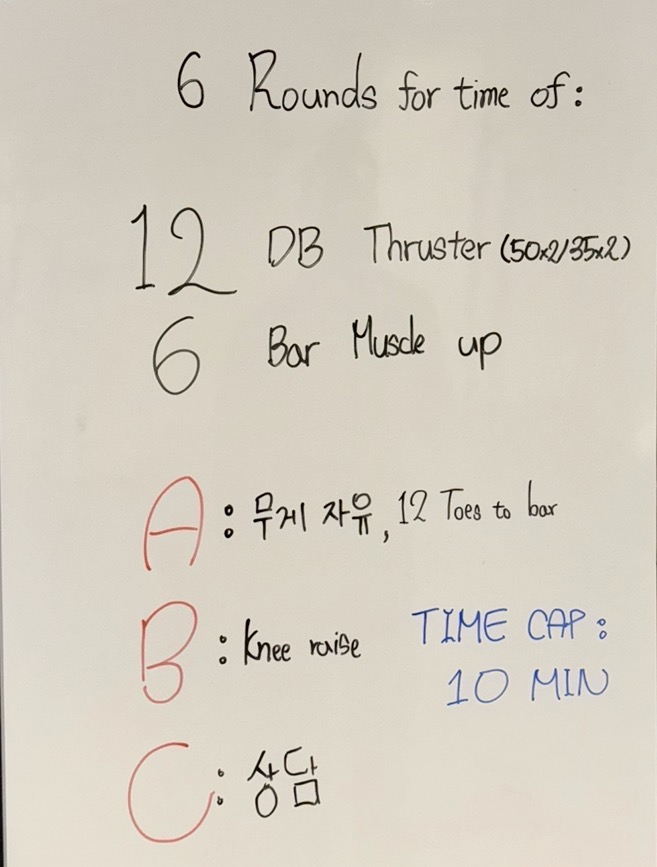 6 Rounds for time of:
12 DB Thruster (50x2/35x2)
6 Bar Muscle up
A: 무게 자유, 12 Toes to bar
B: Knee raise
TIME CAP:
10 MIN
C: 상담